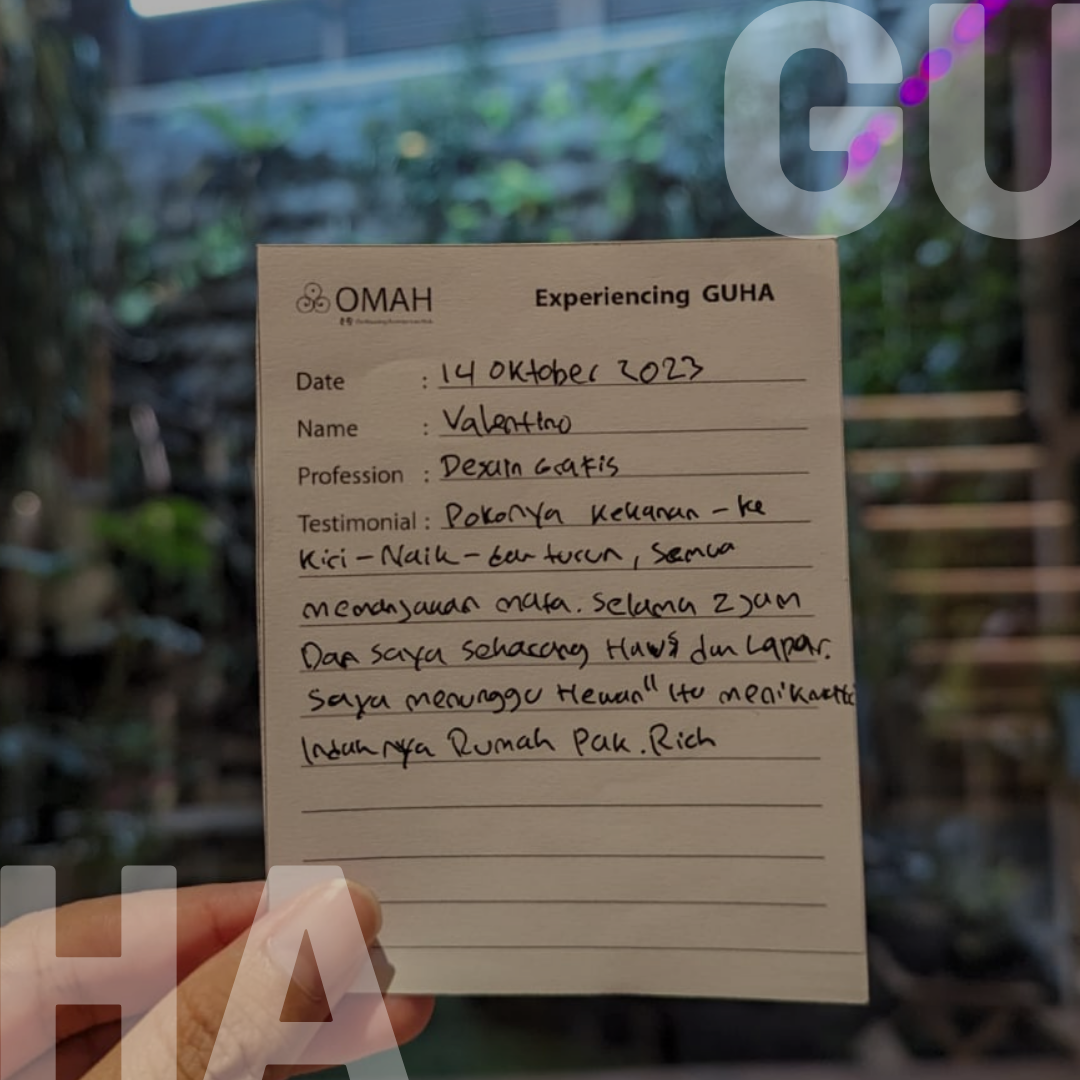 GU
OMAH
Experiencing GUHA
Date : 14 Oktober 2023
Name : Valentino
Profession : Desain Grafis
Testimonial : Pokonya kekanan - ke
kiri - Naik - dan turun, semua
memanjakan mata. Selama 2 jam
Dan saya sekarang Haus dan Lapar.
Saya menunggu Hewan" itu menikmati
Indahnya Rumah Pak. Rich
HA